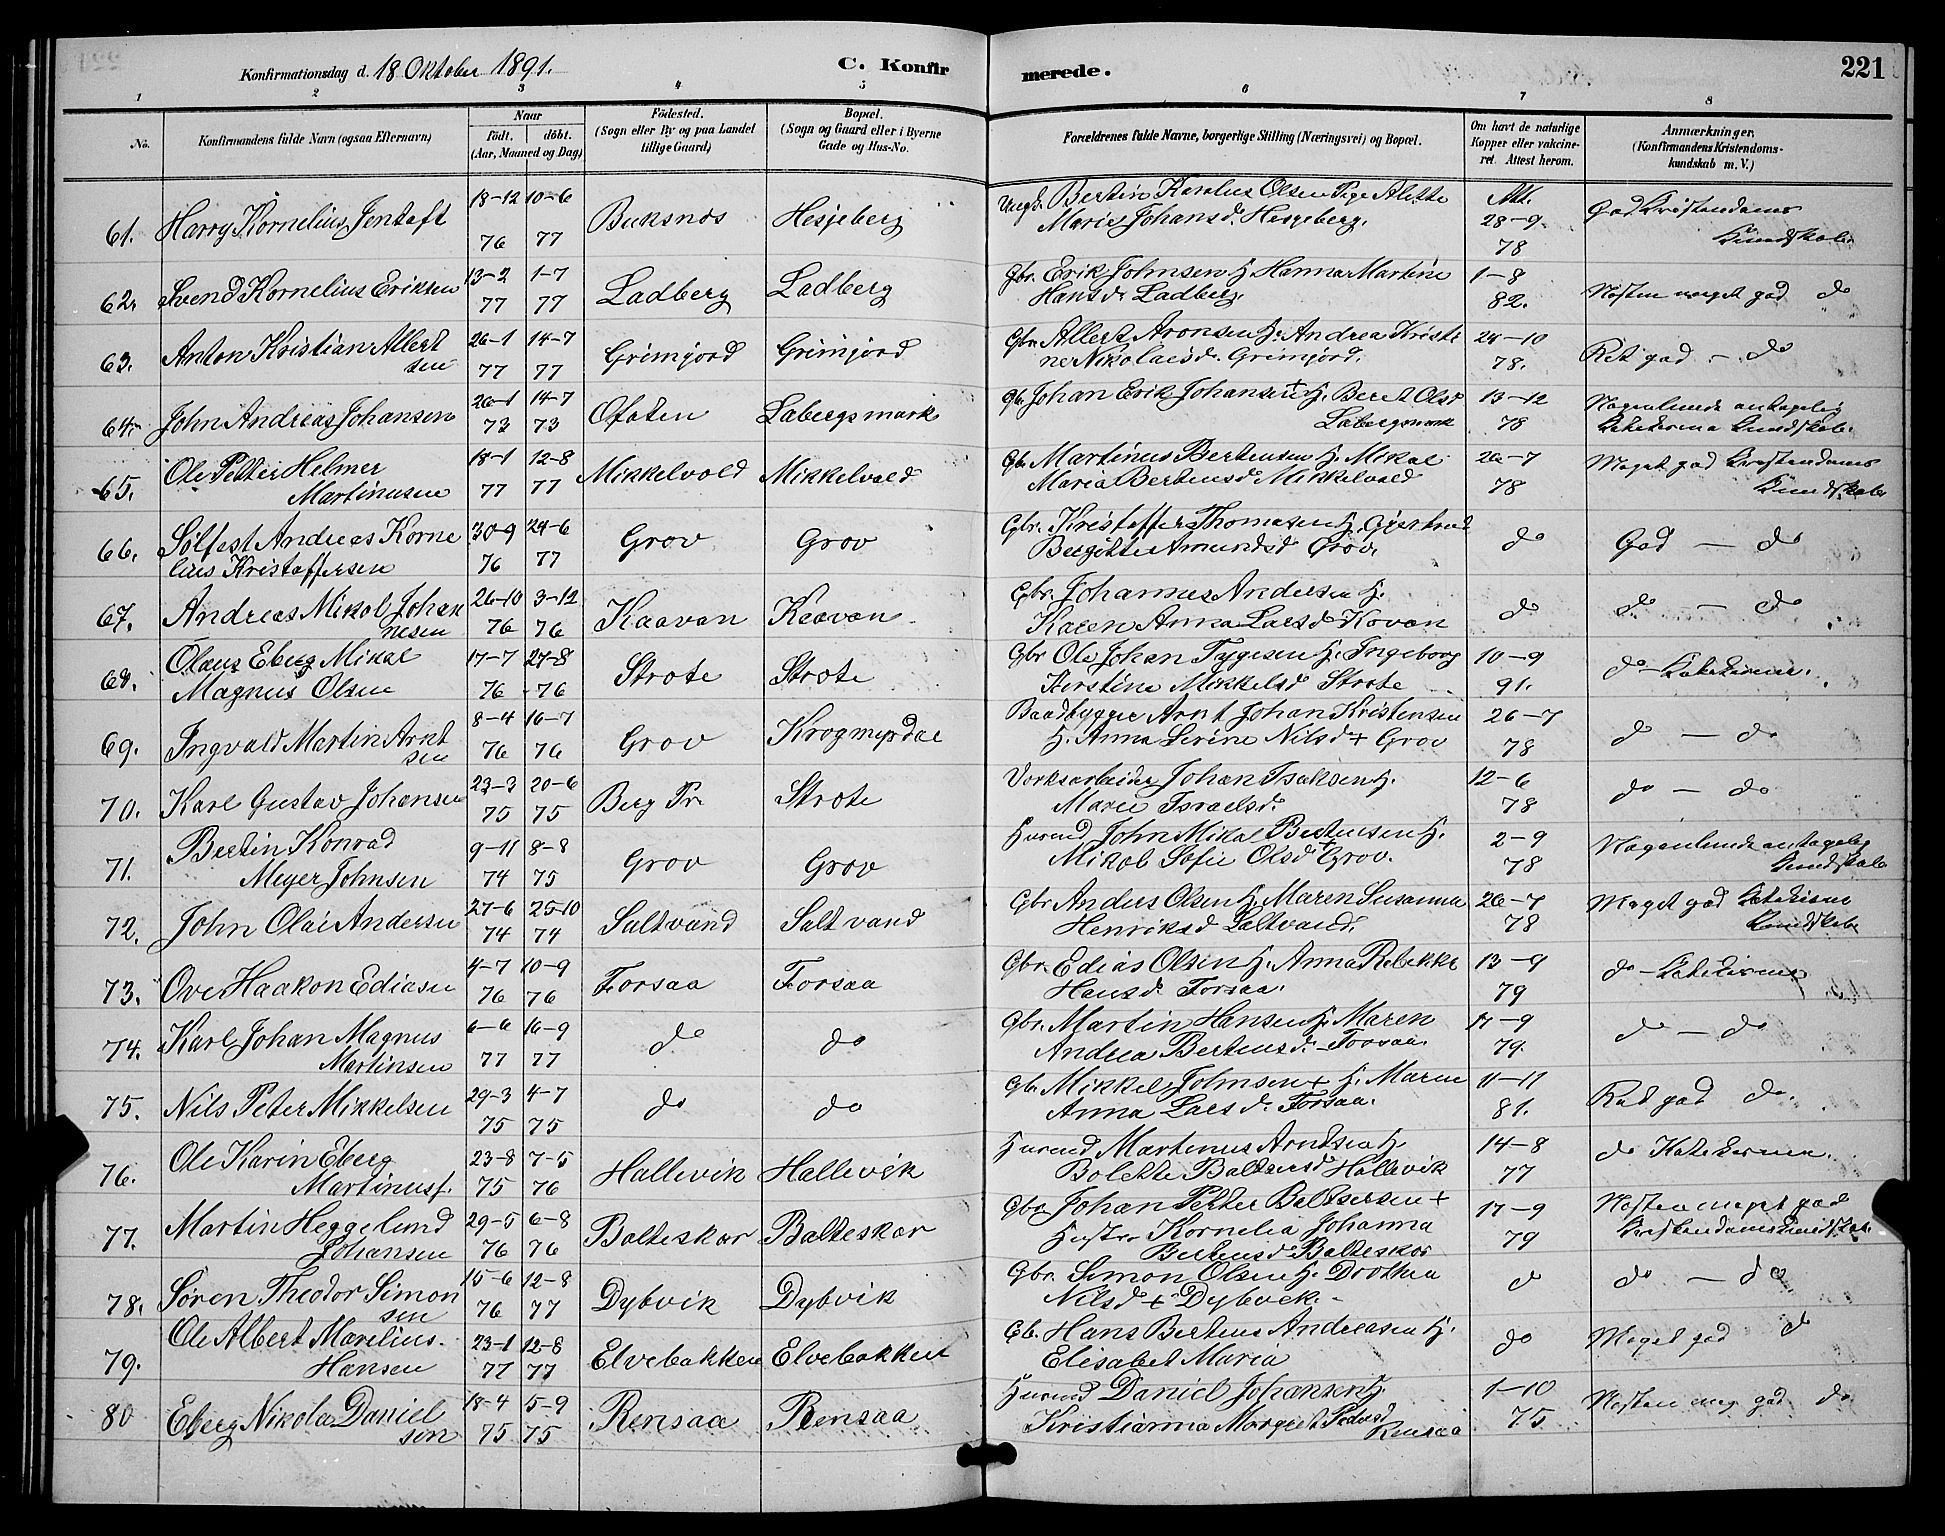 Konfirmationsdag d. 18 Oktober 1891.
C. Konfirmerede.
221
1 2 3 4 5 6 7 8
No.
Konfirmandens fulde Navn (ogsaa Efternavn)
Naar
födt. döbt.
(Aar, Maaned og Dag)
Födested.
(Sogn eller By og paa Landet
tillige Gaard)
Bopæl.
(Sogn og Gaard eller i Byerne
Gade og Hus-No.
Forældrenes fulde Navne, borgerlige Stilling (Næringsvei) og Bopæl.
Om havt de naturlige
Kopper eller vakcine-
ret. Attest herom.
Anmærkninger,
(Konfirmandens Kristendoms-
kundskab m. V.)
61. Harry Kornelius Jentoft 18-12 76 10-6 77 Buksnes Hesjeberg Ungk. Bertin Karolus Olsen Pige Alette
Marie Johansd. Hesjeberg. Att. 28-9 78 God Kristendoms
Kundskab
62. Svend Kornelius Eriksen 13-2 77 1-7 77 Ladberg Ladberg Gbr. Erik Johnsen H. Hanna Martine
Hansd. Ladberg. 1-8 82. Næsten meget god do
63. Anton Kristian Albert
sen 26-1 77 14-7 77 Grimjord Grimjord Gbr. Albert Aronsen H. Andrea Kristi
ne Nikolaisd. Grimjord. 24-10 78. Ret god - do
64. John Andreas Johansen 26-1 73 14-7 73 Ofoten Labergsmark Gb. Johan Erik Johansen + H. Beret Olsd
Labergsmark 13-12 78 Nogenlunde antagelig
Katekisma Kundskab.
65. Ole Petter Helmer
Martinusen 18-1 77 12-8 77 Mikkelvold Mikkelvold Gbr Martinus Bertensen H. Mikal
Maria Bertensd. Mikkelvold 26-7 78 Meget god Kristendoms
Kundskab
66. Sölfest Andreas Korne
lius Kristoffersen 30-9 76 24-6 77 Grov Grov Gbr. Kristoffer Thomasen H. Gjertrud
Bergitte Amundsd Grov. do God - do
67. Andreas Mikal Johan
nesen 26-10 76 3-12 76 Kaavan Kaavan Gbr. Johannes Andersen H.
Karen Anna Larsd. Kovan do do - do
68. Olaus Eberg Mikal
Magnus Olsen 17-7 76 27-8 76 Strote Strote Gbr Ole Johan Tygesen H. Ingeborg
Kirstine Mikkelsd Strote 10-9 91. do - Katekisme.
69. Ingvald Martin Arnt
sen 8-4 76 16-7 76 Grov Krogmyrdal Baadbygger Arnt Johan Kristensen
H. Anna Serine Nilsd + Grov 26-7 78 do - do
70. Karl Gustav Johansen 23-3 75 20-6 75 Berg Pr. Strote Verksarbeider Johan Isaksen H.
Marie Israelsd. 12-6 78 do - do
71. Bertin Konrad
Meyer Johnsen 9-11 74 8-8 75 Grov Grov Husmd John Mikal Bertensen H.
Mikal Sofie Olsd + Grov. 2-9 78 Nogenlunde antagelig
Kundskab
72. John Olai Andersen 27-6 74 25-10 74 Saltvand Saltvand Gbr Anders Olsen H. Maren Susanna
Henriksd Saltvand. 26-7 78 Meget god Katekisme
Kundskab
73. Ove Haakon Ediasen 4-7 76 10-9 76 Forsaa Forsaa Gbr. Edias Olsen H. Anna Rebekka
Hansd. Forsaa. 13-9 79 do - Katekisme
74. Karl Johan Magnus
Martinsen 6-6 77 16-9 77 do do Gbr. Martin Hansen H. Maren
Andrea Bertensd. Forsaa. 17-9 79. do - do
75. Nils Peter Mikkelsen 29-3 75 4-7 75 do do Gbr. Mikkel Johnsen + H. Maren
Anna Larsd. Forsaa. 11-11 81. Ret god do.
76. Ole Karin Eberg
Martinusf. 23-8 75 7-5 76 Hallevik Hallevik Husmd Martinus Arndsen H.
Bolette Baltsersd Hallevik 14-8 77 do Katekisme.
77. Martin Heggelund
Johansen 29-5 76 6-8 76 Balteskar Balteskar Gbr Johan Petter Baltsersen +
Hustr. Kornelia Johanna
Bertensd. Balteskar 17-9 79 Næsten meget god
Kristendoms Kundskab
78. Sören Theodor Simon
sen 15-6 76 12-8 77 Dybvik Dybvik Gbr. Simon Olsen H. Dorthea
Nilsd + Dybvik. do do - do
79. Ole Albert Marelius
Hansen 23-1 77 12-8 77 Elvebakken Elvebakken Gb. Hans Berteus Andreasen H.
Elisabet Maria do Meget god do
80 Eberg Nikolai Daniel
sen 18-4 75 5-9 75 Rensaa Rensaa Husmd Daniel Johansen H.
Kristianna Margret Pedersd
Rensaa 1-10 75. Næsten meg god do